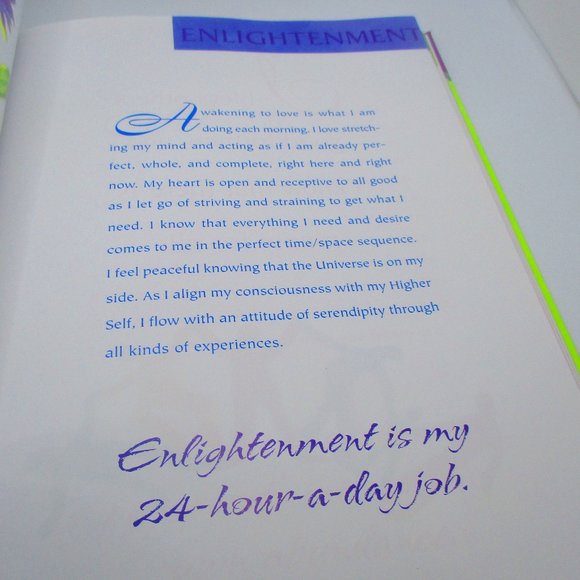 ENLIGHTENMENT
Awakening to love is what I am
doing each morning. I love stretch-
ing my mind and acting as if I am already per-
fect, whole, and complete, right here and right
now. My heart is open and receptive to all good
as I let go of striving and straining to get what I
need. I know that everything I need and desire
comes to me in the perfect time/space sequence.
I feel peaceful knowing that the Universe is on my
side. As I align my consciousness with my Higher
Self, I flow with an attitude of serendipity through
all kinds of experiences.
Enlightenment is my
24-hour-a-day job.